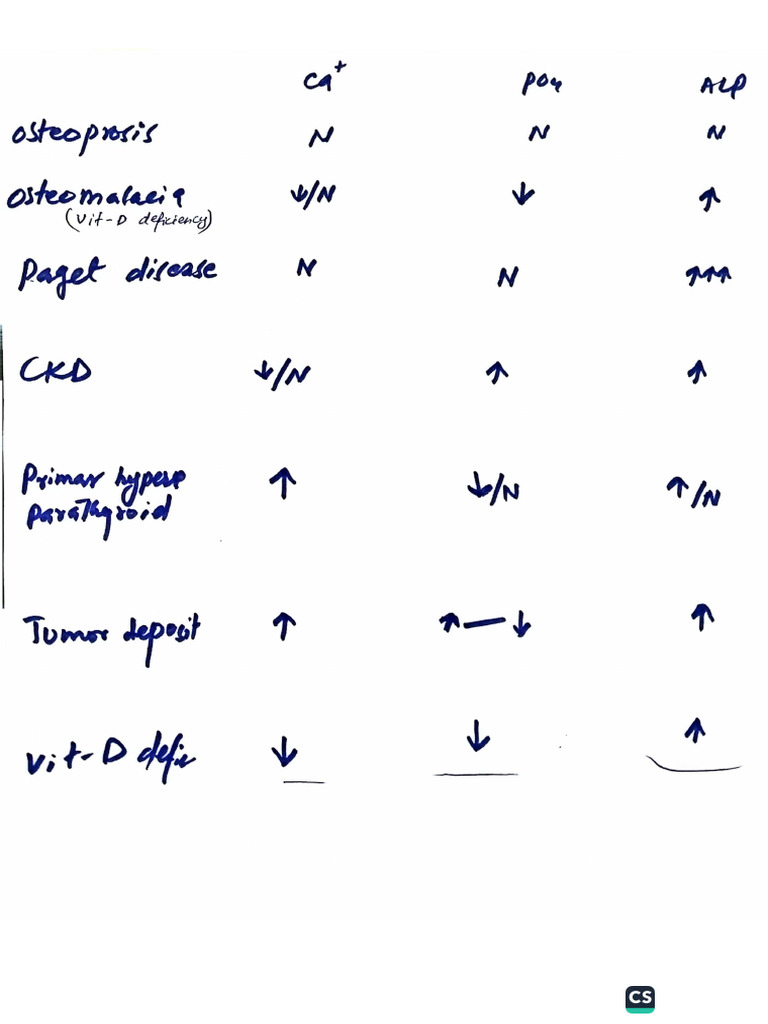 Ca⁺ PO₄ ALP
Osteoprosis N N N
Osteomalacia ↓/N ↓ ↑
(Vit-D deficiency)
Paget disease N N ↑↑↑
CKD ↓/N ↑ ↑
Primar hyper ↑ ↓/N ↑/N
parathyroid
Tumor deposit ↑ ↑—↓ ↑
Vit-D defic ↓ ↓ ↑
CS